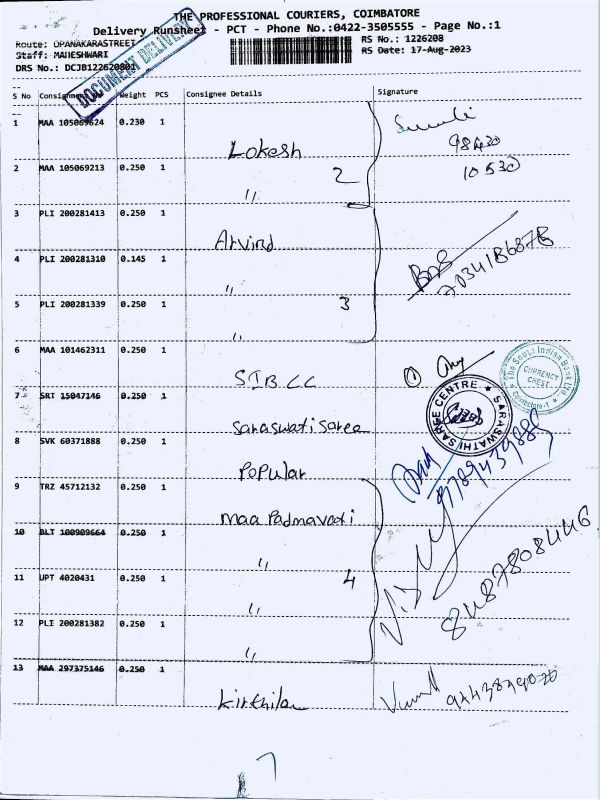 THE PROFESSIONAL COURIERS, COIMBATORE
Delivery Runsheet - PCT - Phone No.:0422-3505555 - Page No.:1
Route: OPANAKARASTREET
RS No.: 1226208
Staff: MAHESHWARI
RS Date: 17-Aug-2023
DRS No.: DCJB122620801
DOCUMENT DELIVERY
S No Weight PCS Consignee Details Signature
1 MAA 105069624 0.230 1
Lokesh
98430
10530
2 MAA 105069213 0.250 1
2
"
3 PLI 200281413 0.250 1
Arvind
4 PLI 200281310 0.145 1
"
5 PLI 200281339 0.250 1
3
"
6 MAA 101462311 0.250 1
SIB CC
1
The South Indian Bank Ltd.
CURRENCY
CHEST
Coimbatore-1
7 SRT 15047146 0.250 1
Saraswati saree
SARASWATHI SAREE CENTRE
8 SVK 60371888 0.250 1
Popular
9 TRZ 45712132 0.250 1
Maa Padmavati
10 BLT 100909664 0.250 1
"
8487808446
11 UPT 4020431 0.250 1
4
"
12 PLI 200281382 0.250 1
"
13 MAA 297375146 0.250 1
7